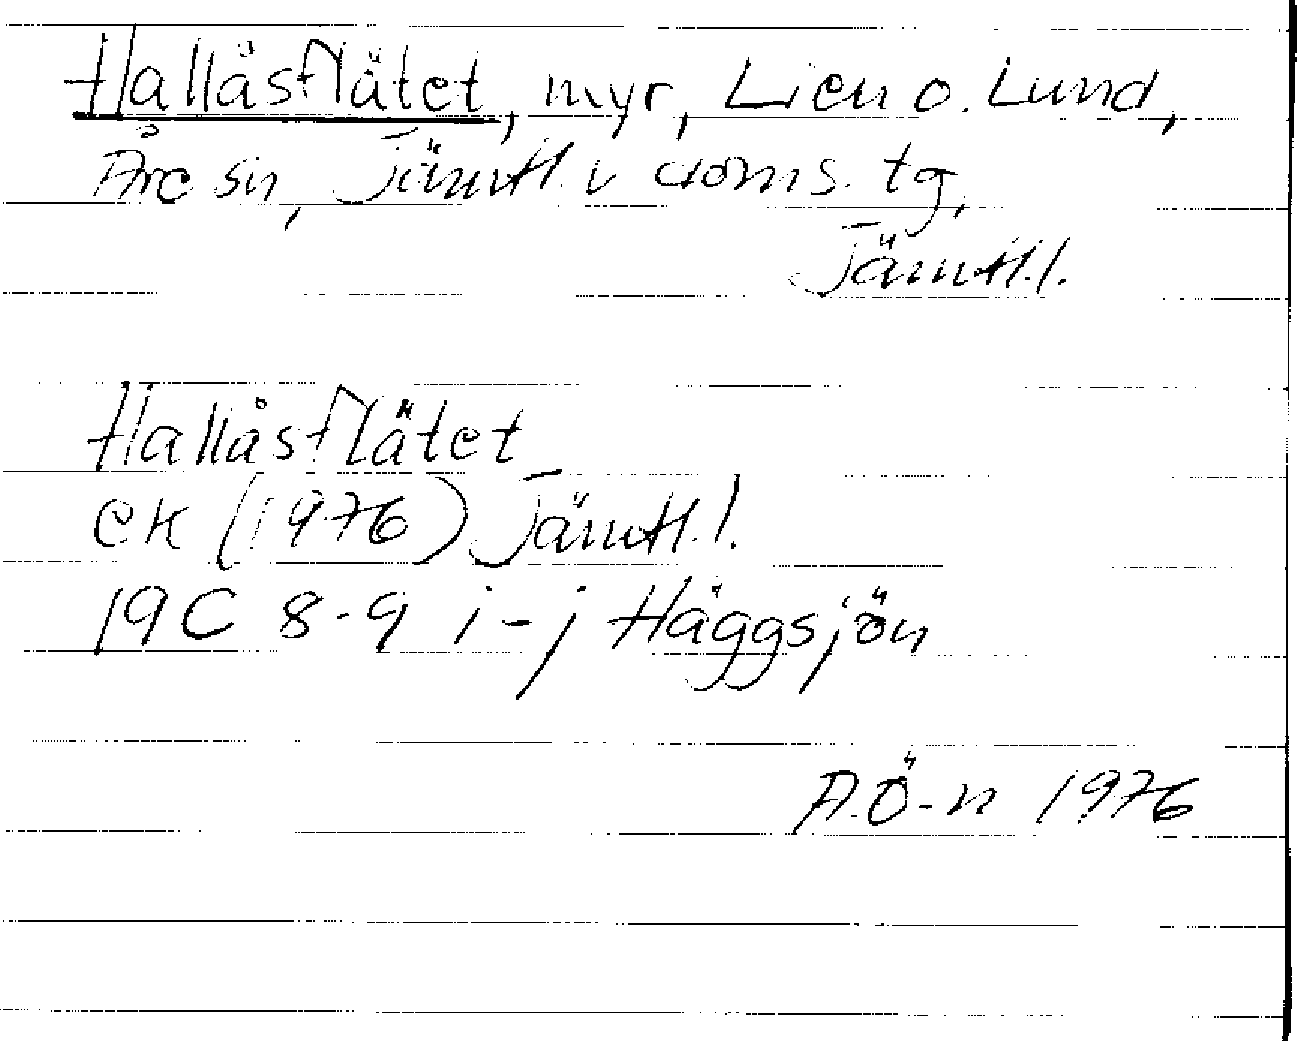 Hallåsflätet, myr, Lien o. Lund,
Åre sn, Jämtl. v doms. tg,
Jämtl. l.
Hallåsflätet
ek (1976) Jämtl. l.
19C 8-9 i-j Häggsjön
A.Ö-n 1976